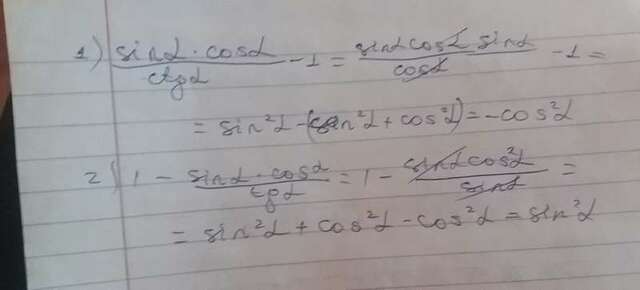 1) sinα · cosα / ctgα - 1 = sinα cosα sinα / cosα - 1 =
= sin²α - (sin²α + cos²α) = -cos²α
2) 1 - sinα · cosα / tgα = 1 - sinα cos²α / sinα =
= sin²α + cos²α - cos²α = sin²α